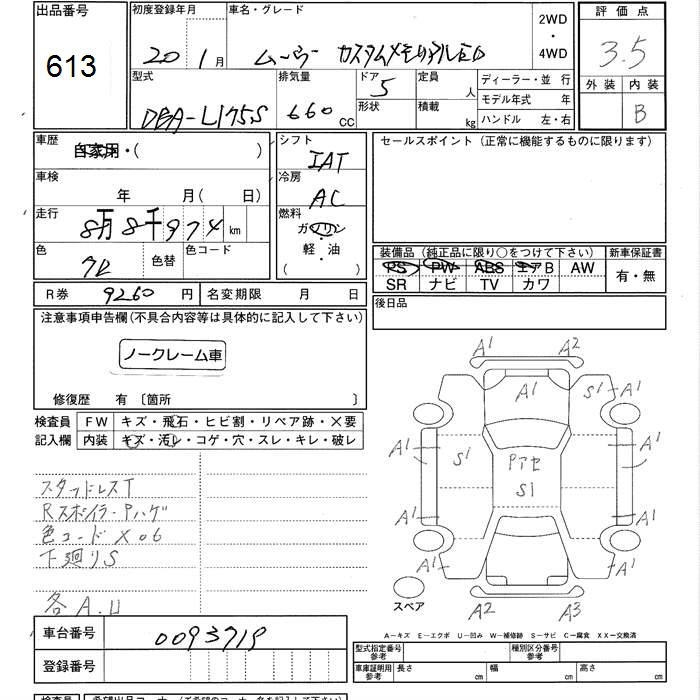 出品番号
613
初度登録年月
20 1月
車名・グレード
ムーヴ カスタムメモリアルED
2WD
・
4WD
評価点
3.5
外装 内装
B
型式
DBA-L175S
排気量
660 CC
ドア
5
形状
定員
人
積載
kg
ディーラー・並 行
モデル年式 年
ハンドル 左・右
車歴
自家用・( )
シフト
IAT
セールスポイント(正常に機能するものに限ります)
車検
年 月( 日)
冷房
AC
走行
8万8千974 km
燃料
ガソリン
軽・油
( )
色
クロ
色替
色コード
装備品(純正品に限り○をつけて下さい)
新車保証書
PS PW ABS エアB AW
SR ナビ TV カワ
有・無
R券 9260 円
名変期限 月 日
後日品
注意事項申告欄(不具合内容等は具体的に記入して下さい)
ノークレーム車
修復歴 有 〔箇所 〕
検査員
記入欄
FW キズ・飛石・ヒビ割・リペア跡・X要
内装 キズ・汚レ・コゲ・穴・スレ・キレ・破レ
スタッドレスT
Rスポイラーアハゲ
色コードX06
下廻りS
各A.U
A1 A2
A1 S1 A1
A1 S1 Pアセ A1
S1
A1 A1
A2 A3
スペア
A-キズ E-エクボ U-凹み W-補修跡 S-サビ C-腐食 XX-交換済
車台番号
0093719
登録番号
型式指定番号
参考
種別区分番号
参考
車庫証明用
参考
長さ cm 幅 cm 高さ cm